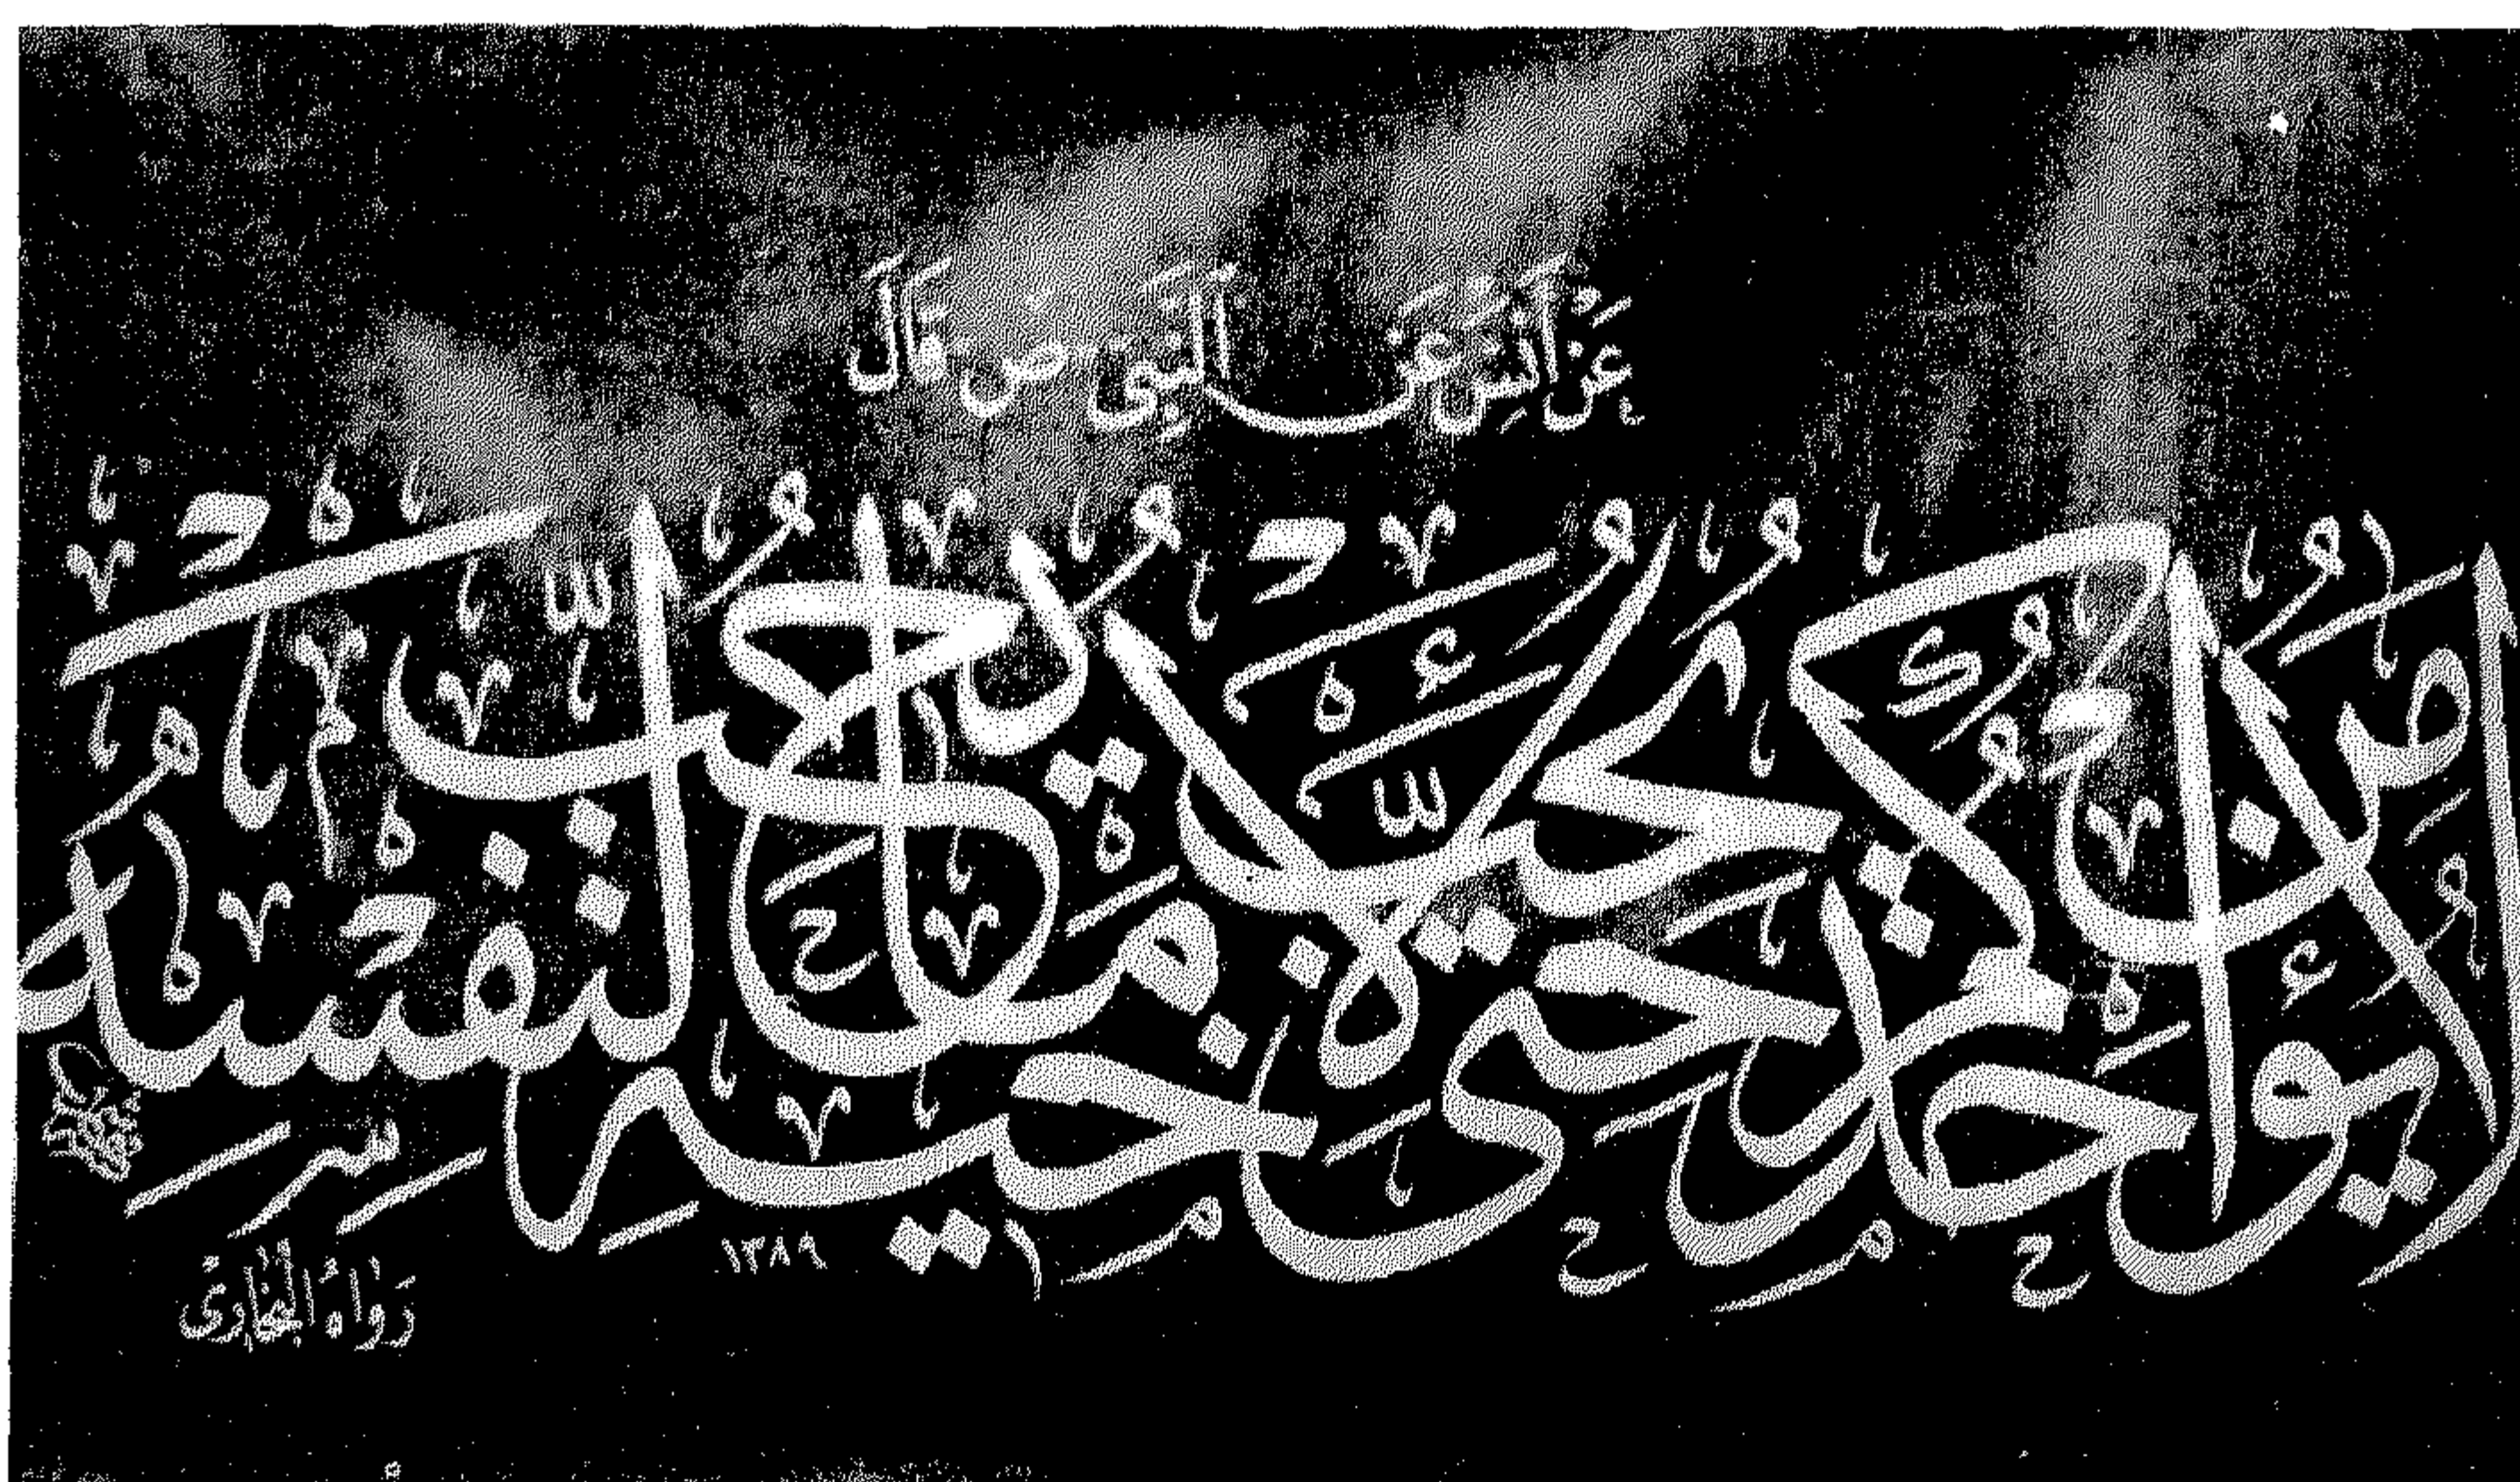 عَنْ أَنَسٍ عَنِ ٱلنَّبِى ص قَالَ
لا يؤمن أحدكم حتى يحب لأخيه ما يحب لنفسه
١٣٨٩
رَوَاهُ الْبُخَارِى